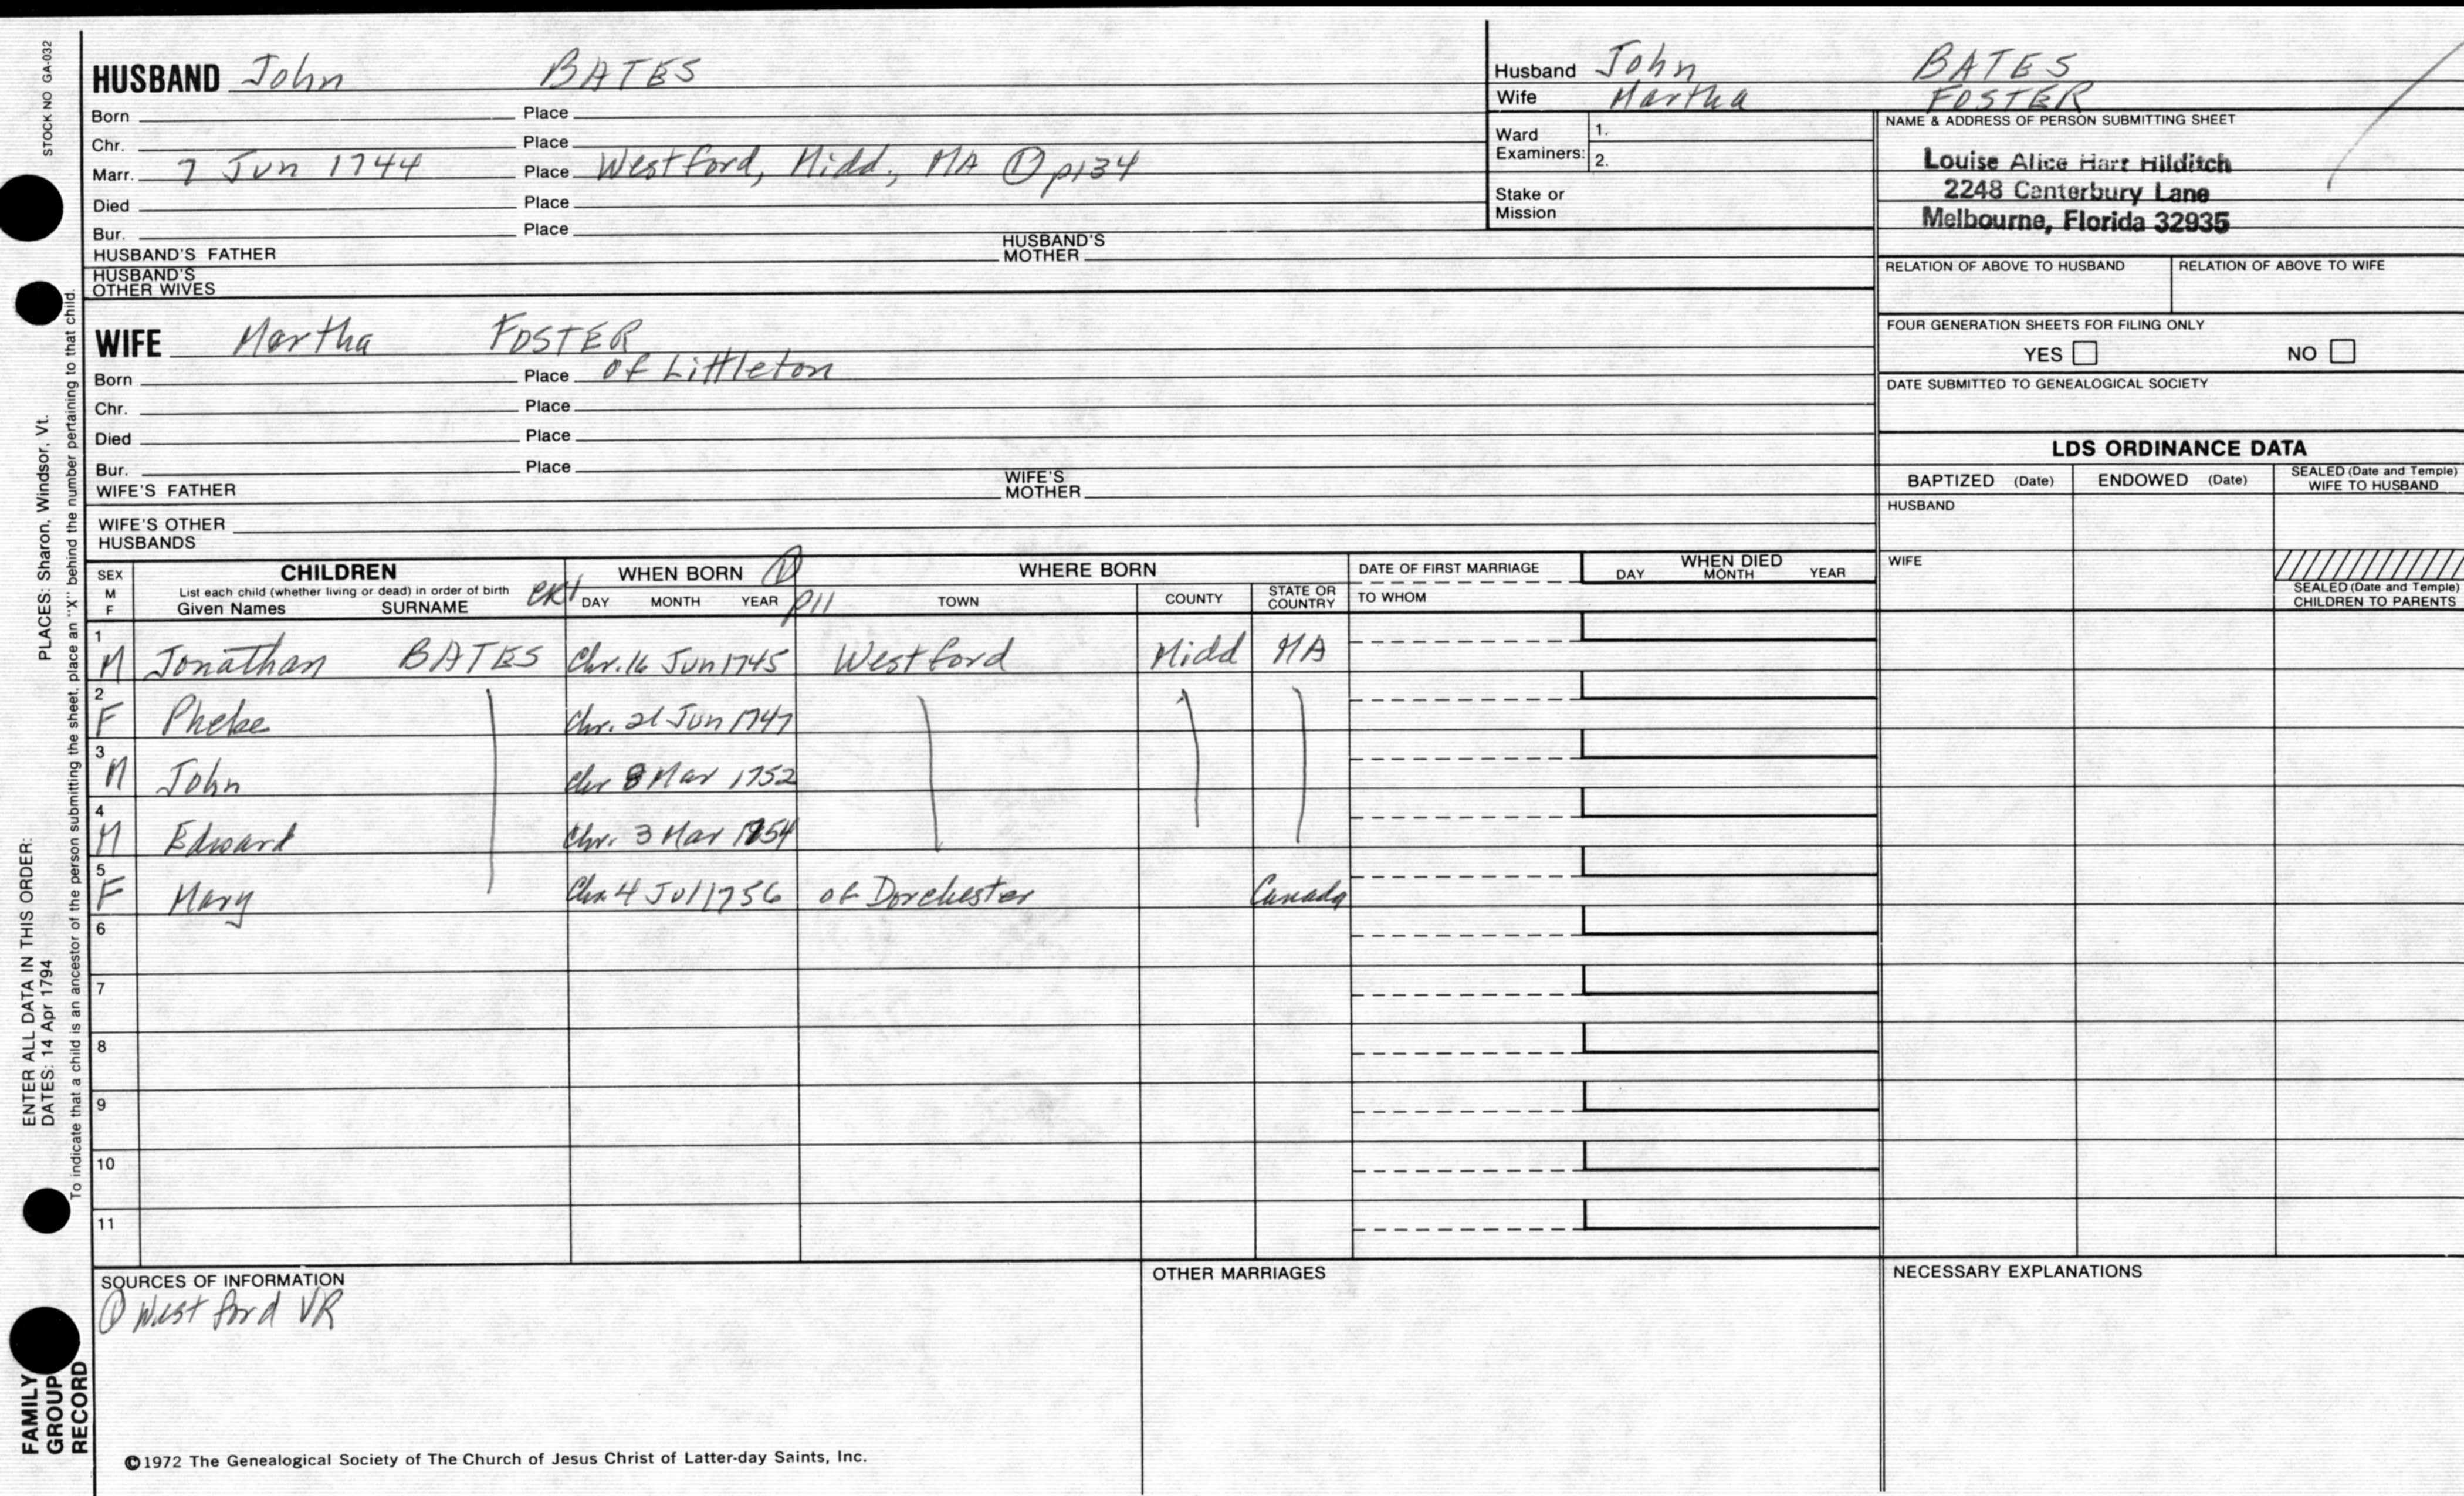 STOCK NO GA-032
PLACES: Sharon, Windsor, Vt.
ENTER ALL DATA IN THIS ORDER:
DATES: 14 Apr 1794
To indicate that a child is an ancestor of the person submitting the sheet, place an "X" behind the number pertaining to that child.
FAMILY
GROUP
RECORD
HUSBAND John BATES
Born Place
Chr. Place
Marr. 7 Jun 1744 Place Westford, Midd., MA ① p134
Died Place
Bur. Place
HUSBAND'S FATHER HUSBAND'S MOTHER
HUSBAND'S OTHER WIVES
WIFE Martha FOSTER
Born Place of Littleton
Chr. Place
Died Place
Bur. Place
WIFE'S FATHER WIFE'S MOTHER
WIFE'S OTHER
HUSBANDS
Husband John BATES
Wife Martha FOSTER
Ward Examiners: 1.
2.
Stake or Mission
NAME & ADDRESS OF PERSON SUBMITTING SHEET
Louise Alice Harr Hilditch
2248 Canterbury Lane
Melbourne, Florida 32935
RELATION OF ABOVE TO HUSBAND RELATION OF ABOVE TO WIFE
FOUR GENERATION SHEETS FOR FILING ONLY
YES NO
DATE SUBMITTED TO GENEALOGICAL SOCIETY
LDS ORDINANCE DATA
BAPTIZED (Date) ENDOWED (Date) SEALED (Date and Temple) WIFE TO HUSBAND
HUSBAND
WIFE
SEALED (Date and Temple) CHILDREN TO PARENTS
SEX M F CHILDREN WHEN BORN ① WHERE BORN DATE OF FIRST MARRIAGE WHEN DIED
List each child (whether living or dead) in order of birth
Given Names SURNAME DAY MONTH YEAR p11 TOWN COUNTY STATE OR COUNTRY TO WHOM DAY MONTH YEAR
1 M Jonathan BATES Chr. 16 Jun 1745 Westford Midd MA
2 F Phebe Chr. 21 Jun 1747
3 M John Chr 8 Mar 1752
4 M Edward Chr. 3 Mar 1754
5 F Mary Chr 4 Jul 1756 of Dorchester Canada
6
7
8
9
10
11
SOURCES OF INFORMATION OTHER MARRIAGES NECESSARY EXPLANATIONS
① Westford VR
©1972 The Genealogical Society of The Church of Jesus Christ of Latter-day Saints, Inc.